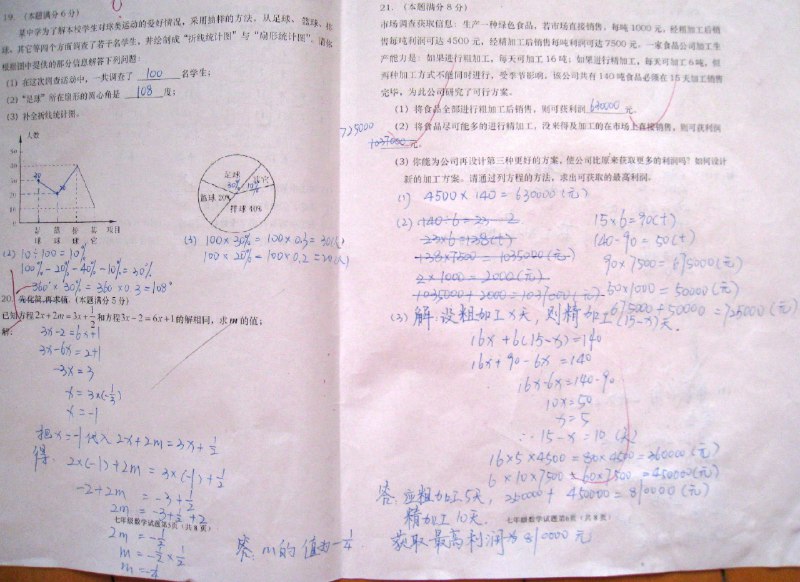 19.（本题满分6分）
某中学为了解本校学生对球类运动的爱好情况，采用抽样的方法，从足球、篮球、排
球、其它等四个方面调查了若干名学生，并绘制成“折线统计图”与“扇形统计图”。请你
根据图中提供的部分信息解答下列问题：
(1) 在这次调查活动中，一共调查了 100 名学生；
(2) “足球”所在扇形的圆心角是 108 度；
(3) 补全折线统计图。
人数
50
40
30
20
10
足球
篮球
排球
其它
项目
30
20
足球
30%
其它
10%
篮球 20%
排球 40%
(2) 10÷100=10%
100%-20%-40%-10%=30%
360°×30%=360×0.3=108°
(3) 100×30%=100×0.3=30(人)
100×20%=100×0.2=20(人)
20. 先化简,再求值.（本题满分5分）
已知方程2x+2m=3x+1/2和方程3x-2=6x+1的解相同，求m的值；
解:
3x-2=6x+1
3x-6x=2+1
-3x=3
x=3×(-1/3)
x=-1
把x=-1代入2x+2m=3x+1/2
得: 2×(-1)+2m=3×(-1)+1/2
-2+2m=-3+1/2
2m=-3+1/2+2
七年级数学试题第5页（共8页）
2m=-1/2
m=-1/2×1/2
m=-1/4
答: m的值为-1/4
21.（本题满分8分）
市场调查获取信息：生产一种绿色食品，若市场直接销售，每吨1000元，经粗加工后销
售每吨利润可达4500元，经精加工后销售每吨利润可达7500元。一家食品公司加工生
产能力是：如果进行粗加工，每天可加工16吨；如果进行精加工，每天可加工6吨，但
两种加工方式不能同时进行，受季节影响，该公司共有140吨食品必须在15天加工销售
完毕，为此公司研究了可行方案。
(1) 将食品全部进行粗加工后销售，则可获利润 630000 元
(2) 将食品尽可能多的进行精加工，没来得及加工的在市场上直接销售，则可获利润
725000
1037000 元.
(3) 你能为公司再设计第三种更好的方案，使公司比原来获取更多的利润吗？如何设计
新的加工方案。请通过列方程的方法，求出可获取的最高利润。
(1) 4500×140=630000(元)
(2) 140÷6=23……2
23×6=138(t)
138×7500=1035000(元)
2×1000=2000(元)
1035000+2000=1037000(元)
15×6=90(t)
140-90=50(t)
90×7500=675000(元)
50×1000=50000(元)
675000+50000=725000(元)
(3) 解:设粗加工x天,则精加工(15-x)天.
16x+6(15-x)=140
16x+90-6x=140
16x-6x=140-90
10x=50
x=5
∴15-x=10(天)
16×5×4500=80×4500=360000(元)
6×10×7500=60×7500=450000(元)
450000=810000(元)
答: 应粗加工5天,
精加工10天.
七年级数学试题第6页（共8页）
获取最高利润为810000元